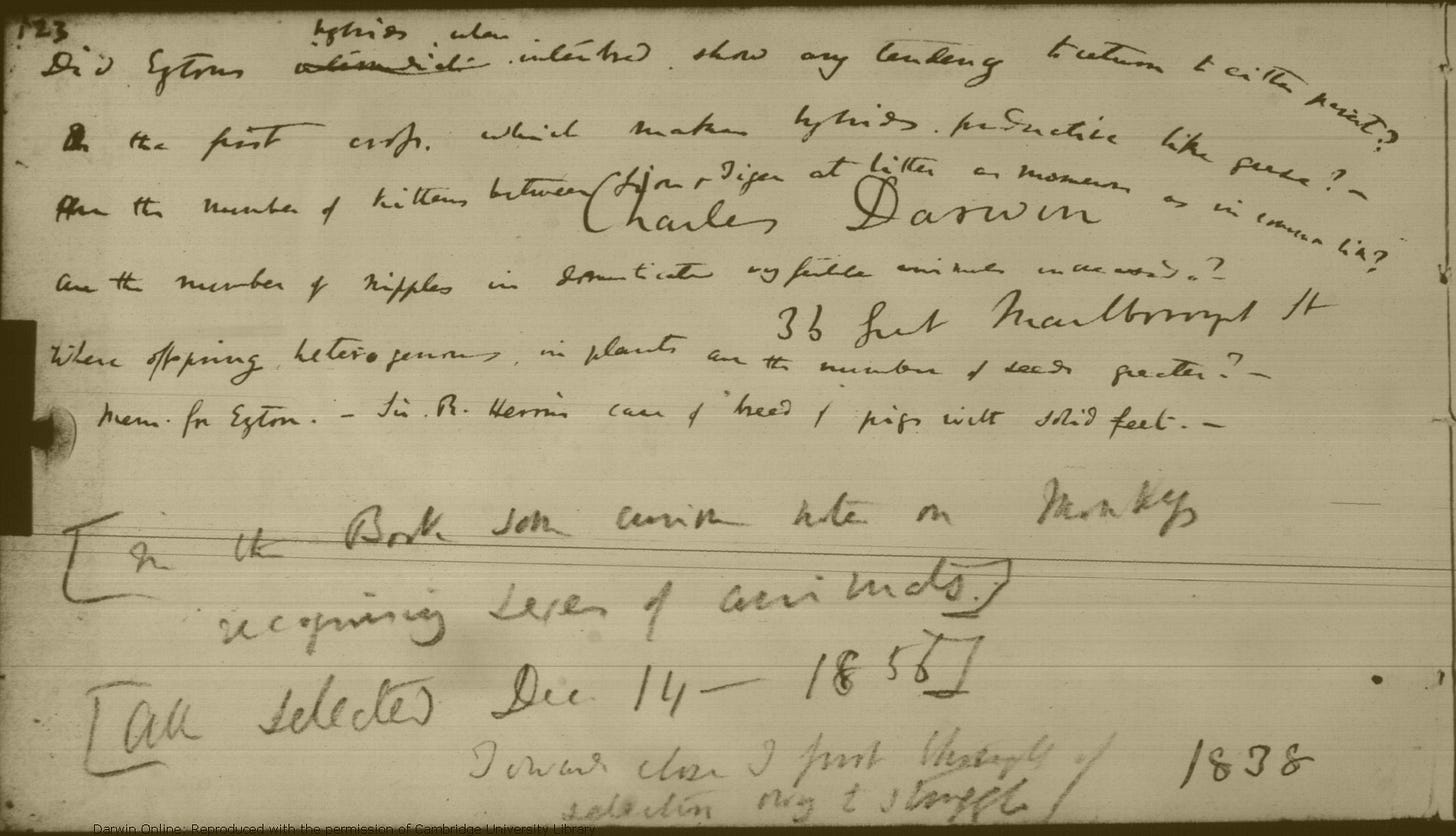 123
hybrids when
Did Eytons intermediate interbred. show any tendency to return to either parent?
In the first cross. which makes hybrids. productive like geese? —
Are the number of kittens between Lion & Tiger at litter as numerous as in common Lion?
Charles Darwin
are the number of nipples in domesticated animals increased.? —
36 Great Marlborough St
Where offspring heterogenous, in plants are the number of seeds greater? —
Mem. for Eyton. — Sir. R. Heron's case of breed of pigs with solid feet. —
[In this Book some curious notes on Monkeys
recognising sexes of animals.]
[All selected Dec 14 — 1856]
Towards close I first thought of
selection owing to struggle
1838
Darwin Online: Reproduced with the permission of Cambridge University Library